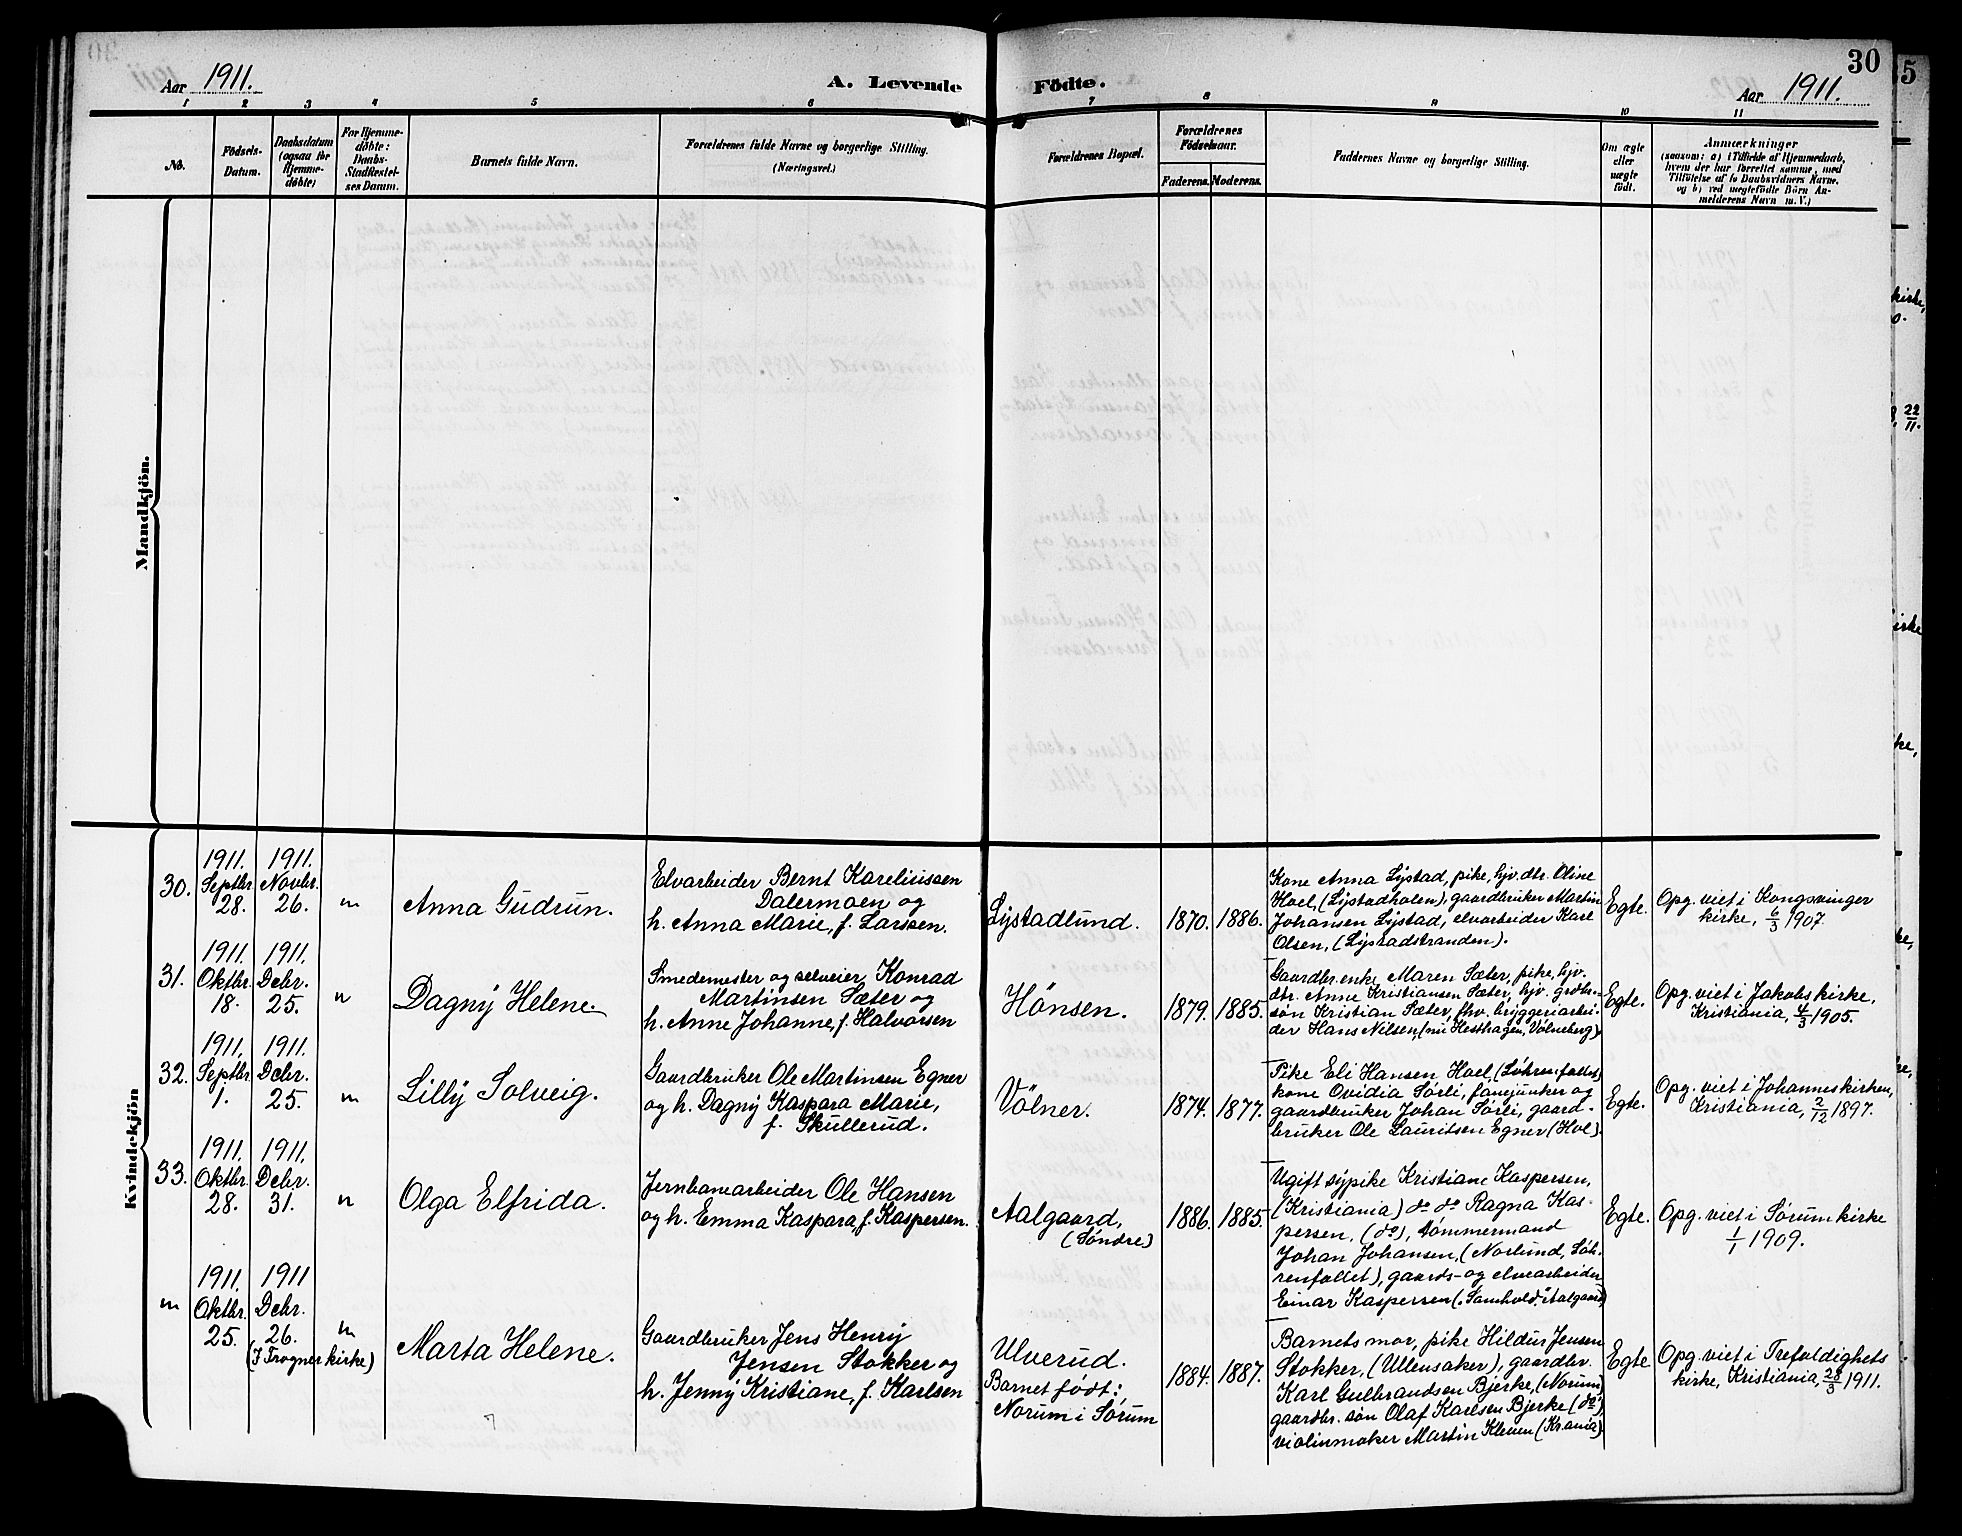 30
Aar 1911.
A. Levende
Födte.
Aar 1911.
1 2 3 4 5 6 7 8 9 10 11
No.
Födsels-
Datum.
Daabsdatum
(ogsaa for
Hjemme-
döbte)
For Hjemme-
döbte:
Daabs-
Stadfæstel-
ses Datum.
Barnets fulde Navn.
Forældrenes fulde Navne og borgerlige Stilling.
(Næringsvei.)
Forældrenes Bopæl.
Forældrenes
Födselsaar.
Faderens. Moderens.
Faddernes Navne og borgerlige Stilling.
Om ægte
eller
uægte
födt.
Anmærkninger
(saasom: a) i Tilfælde af Hjemmedaab,
hvem der har forrettet samme, med
Tilföielse af to Daabsvidners Navne,
og b) ved uegtefödte Börn An-
melderens Navn m. V.)
Mandkjön.
Kvindekjön
30.
1911.
Septbr.
28.
1911.
Novbr.
26.
"
Anna Gudrun.
Elvarbeider Bernt Karelinissen
Dalermoen og
h. Anna Marie, f. Larssen.
Lystadlund.
1870. 1886.
Kone Anna Lystad, pike, hjv. dtr. Oline
Hoel, (Lystadholen), gaardbruker Martin
Johansen Lystad, elvarbeider Karl
Olsen, (Lystadstranden).
Egte.
Opg. viet i Kongsvinger
kirke, 6/3 1907.
31.
1911.
Oktbr.
18.
1911.
Debr.
25.
"
Dagny Helene.
Smedemester og selveier Konrad
Martinsen Sæter og
h. Anne Johanne, f. Halvorsen
Hönsen.
1879. 1885.
Gaardbr. enke Maren Sæter, pike, hjv.
dtr. Anne Kristiansen Sæter, hjv. grdbr.-
sön Kristian Sæter, fhv. bryggeriarbei-
der Hans Nilsen, (nu Hesthagen, Volneberg)
Egte.
Opg. viet i Jakobs kirke,
Kristiania, 4/3 1905.
32.
1911.
Septbr.
1.
1911.
Debr.
25.
"
Lilly Solveig.
Gaardbruker Ole Martinsen Egner
og h. Dagny Kaspara Marie,
f. Skullerud.
Völner.
1874. 1877.
Pike Eli Hansen Hoel, (Löhrenfallet)
kone Ovidia Sörli, fanejunker og
gaardbruker Johan Sörli, gaard-
bruker Ole Lauritsen Egner (Hvl).
Egte.
Opg. viet i Johanneskirken,
Kristiania, 2/12 1897.
33.
1911.
Oktbr.
28.
1911.
Debr.
31.
"
Olga Elfrida.
Jernbanearbeider Ole Hansen
og h. Emma Kaspara, f. Kaspersen.
Aalgaard,
(Söndre)
1886. 1885.
Ugift sypike Kristiane Kaspersen,
(Kristiania) do do Ragna Kas-
persen, (do), tömmermand
Johan Johansen, (Norlund, Löh-
renfallet), gaards- og elvearbeider
Einar Kaspersen ("Samhold" i Aalgaard)
Egte.
Opg. viet i Sörum kirke
1/1 1909.
"
1911.
Oktbr.
25.
1911
Debr.
26.
(I Frogner kirke)
"
Marta Helene.
Gaardbruker Jens Henry
Jensen Stokker og
h. Jenny Kristiane, f. Karlsen
Ulverud.
Barnet födt:
Norum i Sörum
1884. 1887.
Barnets mor, pike Hildur Jensen
Stokker, (Ullensaker), gaardbr.
Karl Gulbrandsen Bjerke, (Norum),
gaardbr. sön Olaf Karlsen Bjerke (do),
violinmaker Martin Kleven (Kr.ania)
Egte
Opg. viet i Trefoldighets
kirke, Kristiania, 28/3 1911.